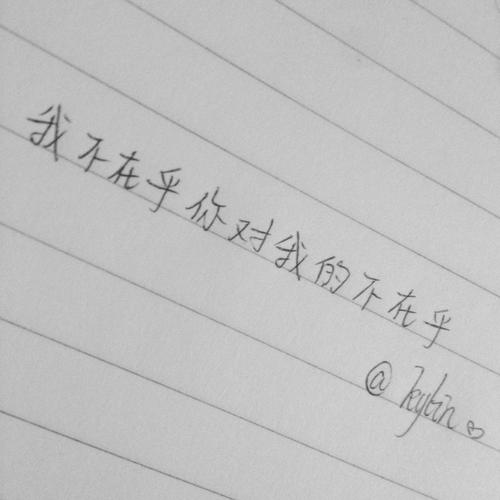 我不在乎你对我的不在乎
@ kytin ♡